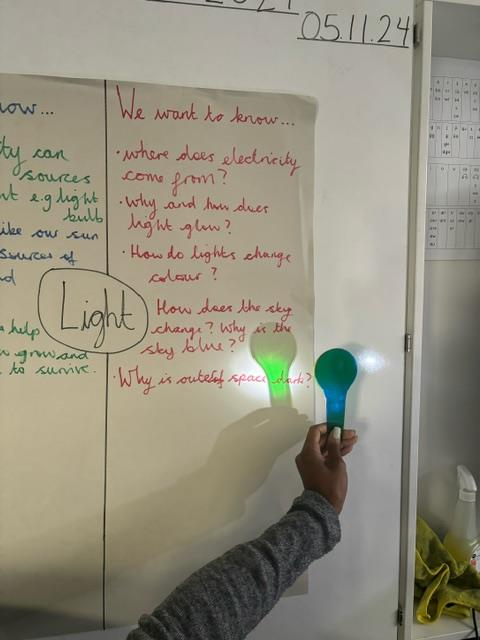 05.11.24
now...
ty can
sources
e.g light
bulb
like our sun
sources of
Light
help
grow and
to survive.
We want to know...
· where does electricity
come from?
· Why and how does
light glow?
· How do lights change
colour?
How does the sky
change? Why is the
sky blue?
· Why is outer of space dark?